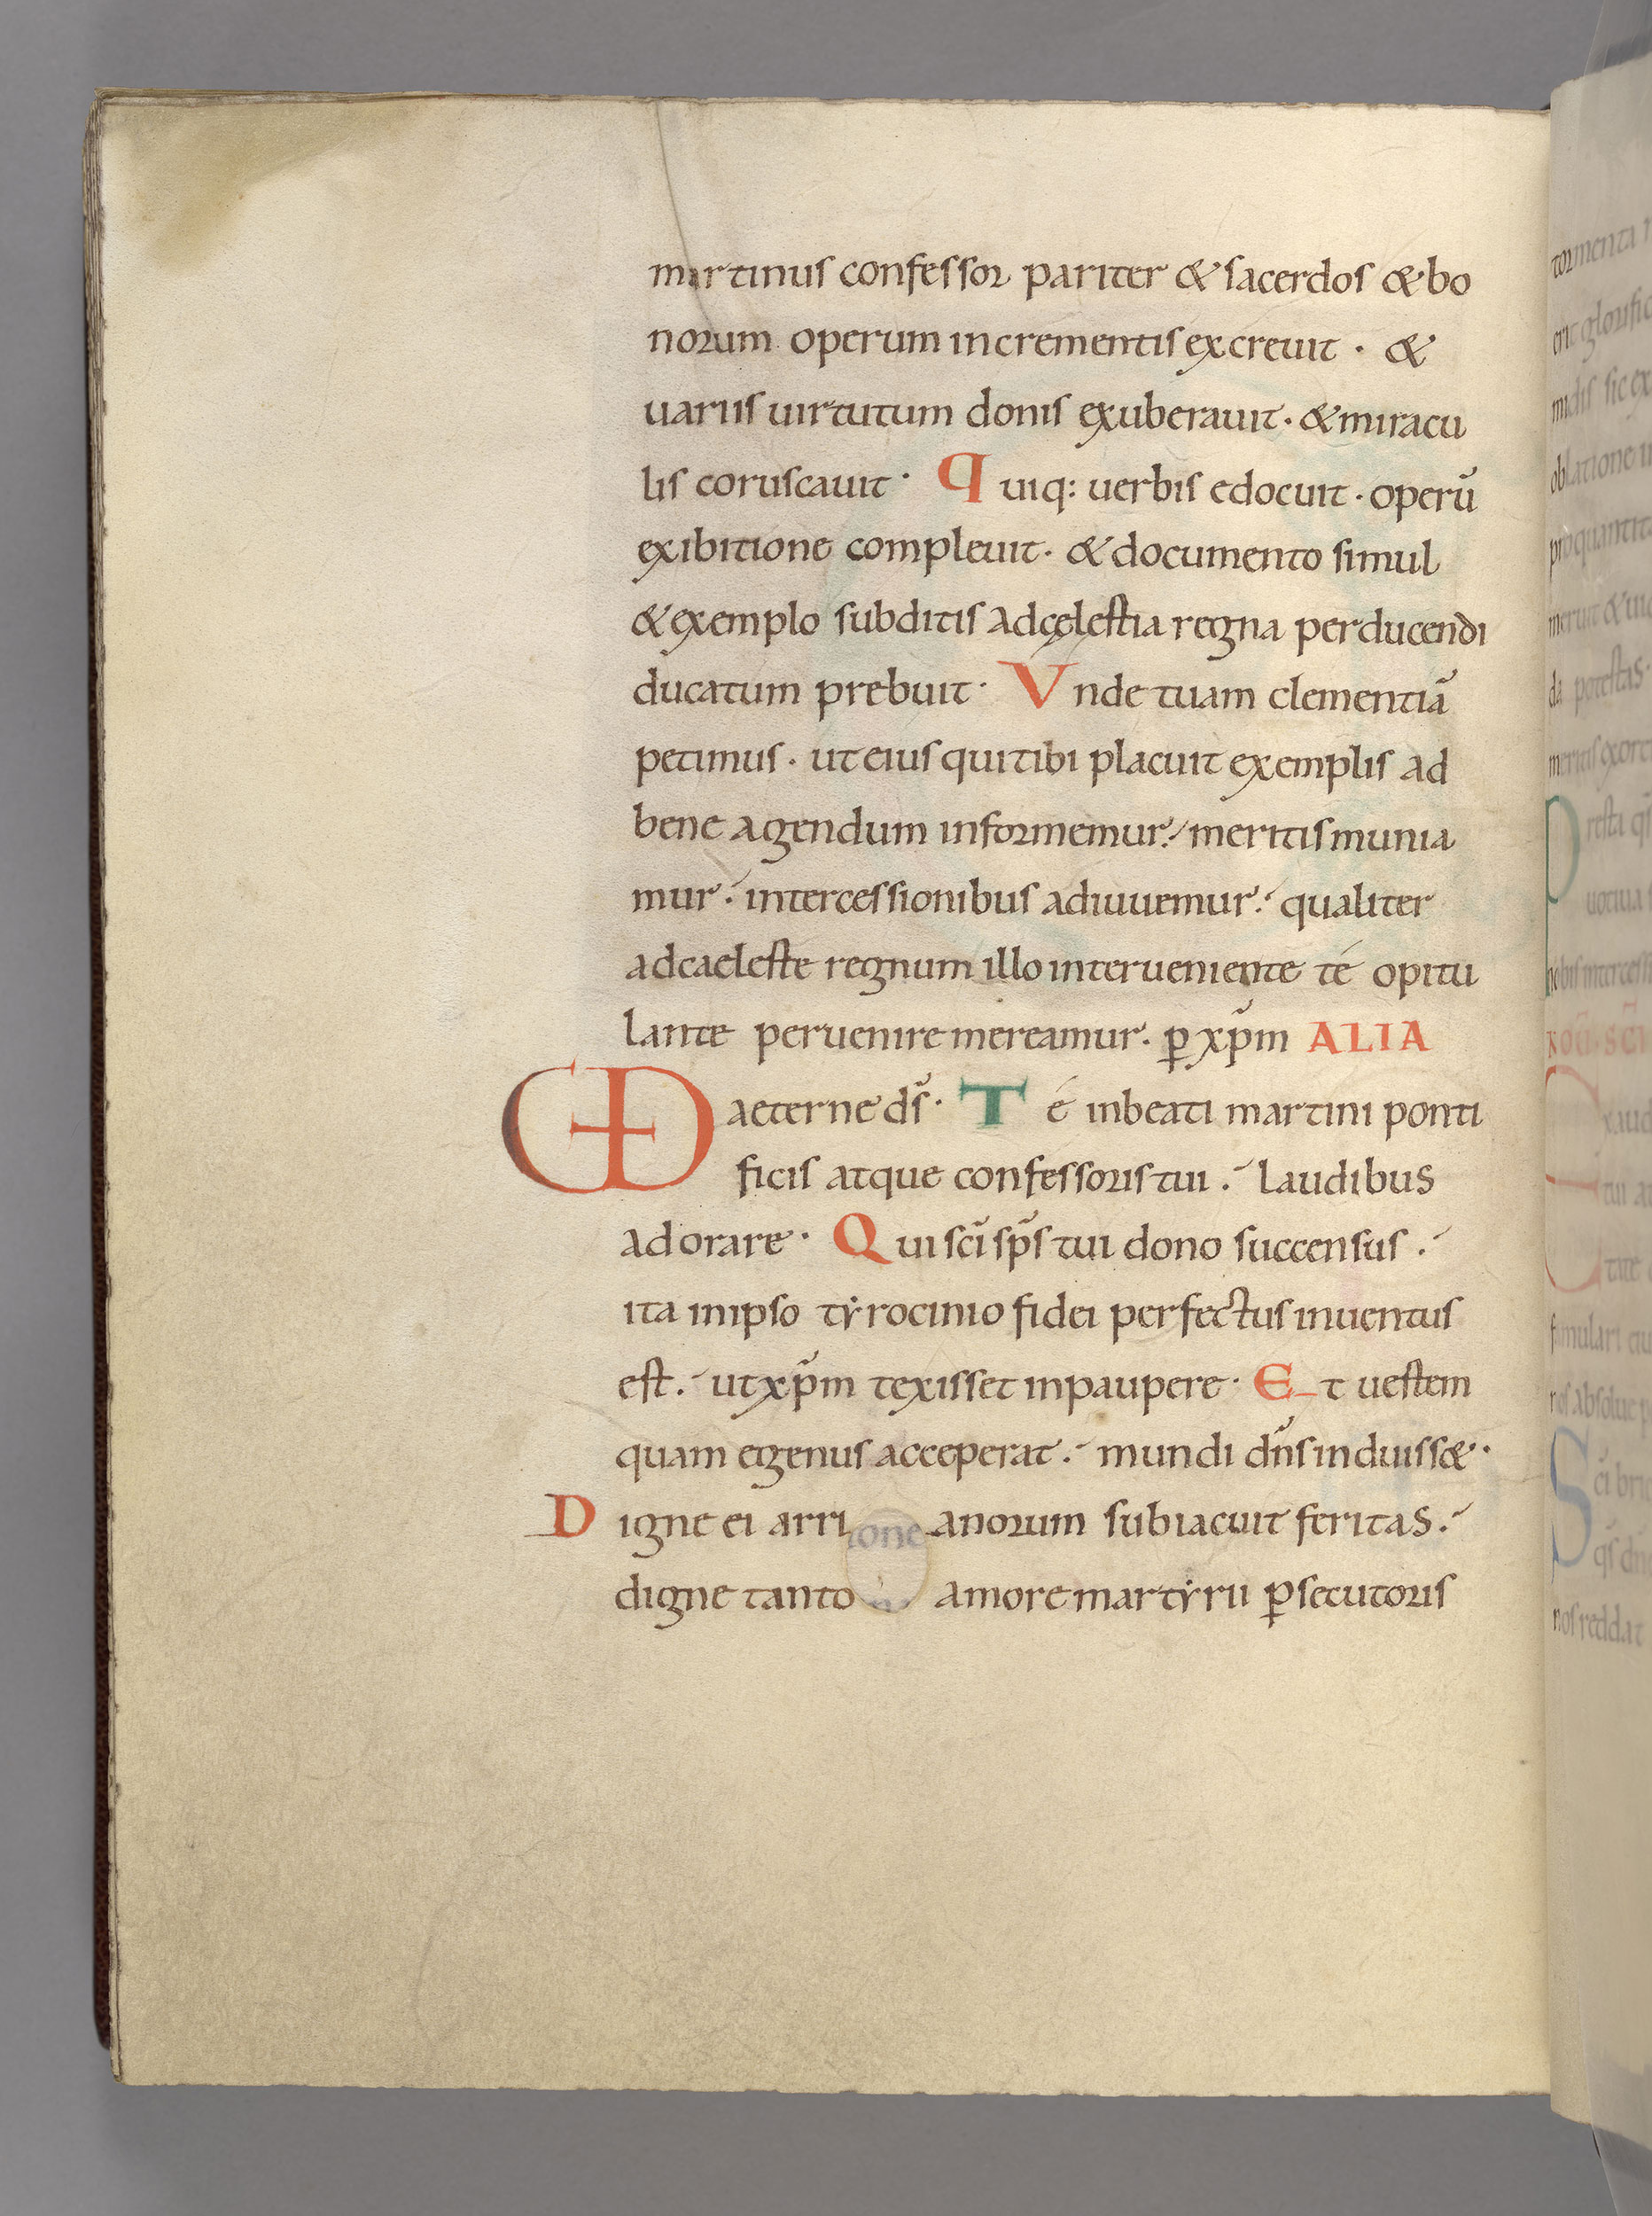 martinus confessor pariter & sacerdos & bo
norum operum incrementis excreuit · &
uariis uirtutum donis exuberauit · & miracu
lis coruscauit · Quiq: uerbis edocuit · operū
exibitione compleuit · & documento simul
& exemplo subditis ad cęlestia regna perducendi
ducatum prebuit · Vnde tuam clementiā
petimus · ut eius qui tibi placuit exemplis ad
bene agendum informemur / meritis munia
mur · intercessionibus adiuuemur · qualiter
ad caeleste regnum illo interueniente té opitu
lante peruenire mereamur · ꝑ xp̄m ALIA
VD aeterne d̄s · Té in beati martini ponti
ficis atque confessoris tui · laudibus
adorare · Qui sc̄i sp̄s tui dono succensus ·
ita in ipso tẏrocinio fidei perfectus inuentus
est · ut xp̄m texisset in paupere · Et uestem
quam egenus acceperat · mundi dn̄s induiss& ·
Digne ei arri ione anorum subiacuit feritas ·
digne tanto amore martẏrii ꝑsecutoris
tormenta
glorific
sic ex
oblatione
proquantit
meruit &
potestis
resta
uociua
nobis intercess
sc̄i
tui
tue
famulari
nos absolue
sc̄i bric
nos reddat